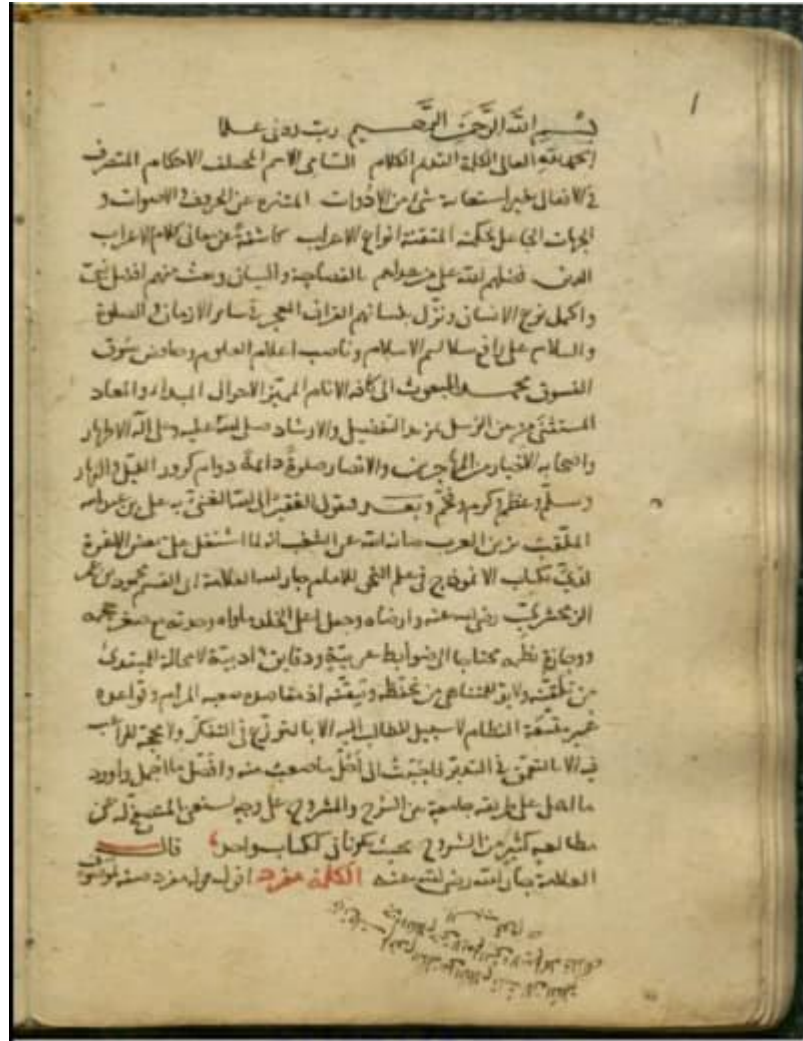 1
بسم الله الرحمن الرحيم رب زدني علما
الحمد لله العالي الكلمة القديم الكلام السامي الاسم المختلف الاحكام المتصرف
في الافعال بغير استعانة شئ من الادوات المتنزه عن الحروف والاصوات و
الجهات الجاعل بحكمته المتقنة انواع الاعراب كاشفة عن معاني كلام الاعراب
الذين فضلهم الله على من عداهم بالفصاحة والبيان وبعث منهم افضل نبي
واكمل نوع الانسان ونزل بلسانهم القران المعجز في ساير الازمان والصلوة
والسلام على رافع سلالم الاسلام وناصب اعلام العلوم وخافض سوق
الفسوق محمد المبعوث الى كافة الانام المميز لاحوال المبداء والمعاد
المستثنى من الرسل بمزيد التفضيل والارشاد صلى الله عليه وعلى اله الاطهار
واصحابه الاخيار من المهاجرين والانصار صلوة دائمة دوام كرور الليل والنهار
وسلم وعظم وكرم وفخم وبعد فيقول الفقير الى الله الغني به علي بن
الملقب بزين العرب صانه الله عن الشغب انه لما اشتغل علي بعض
لدي بكتاب الانموذج في علم النحو للامام جار الله العلامة ابي القسم محمود بن عمر
الزمخشري رضي الله عنه وارضاه وجعل اعلى الخلد ماواه وجدته مع صغر حجمه
ووجازة نظمه محتاجا الى ضوابط عربية ودقايق ادبية لا محالة للمبتدئ
من تلقنه ولابد للمتناهي من تحفظه وتيقنه اذ مقاصده صعبة المرام وقواعده
غير متسقة النظام لا سبيل للطالب اليه الا بالتوزع في التفكر ولا للراغب
فيه الا بالتعمق في التدبر فاجببت الى ان احل ما صعب منه وافصل ما اجمل واورد
ما اهمل على طريقة جامعة بين الشرح والمشروح على وجه يستغني المتصفح له عن
مطالعة كثير من الشروح بحيث يكونان ككتاب واحد قال
العلامة جار الله رضي الله عنه الكلمة مفرد اقول قوله مفرد صفة لموصوف